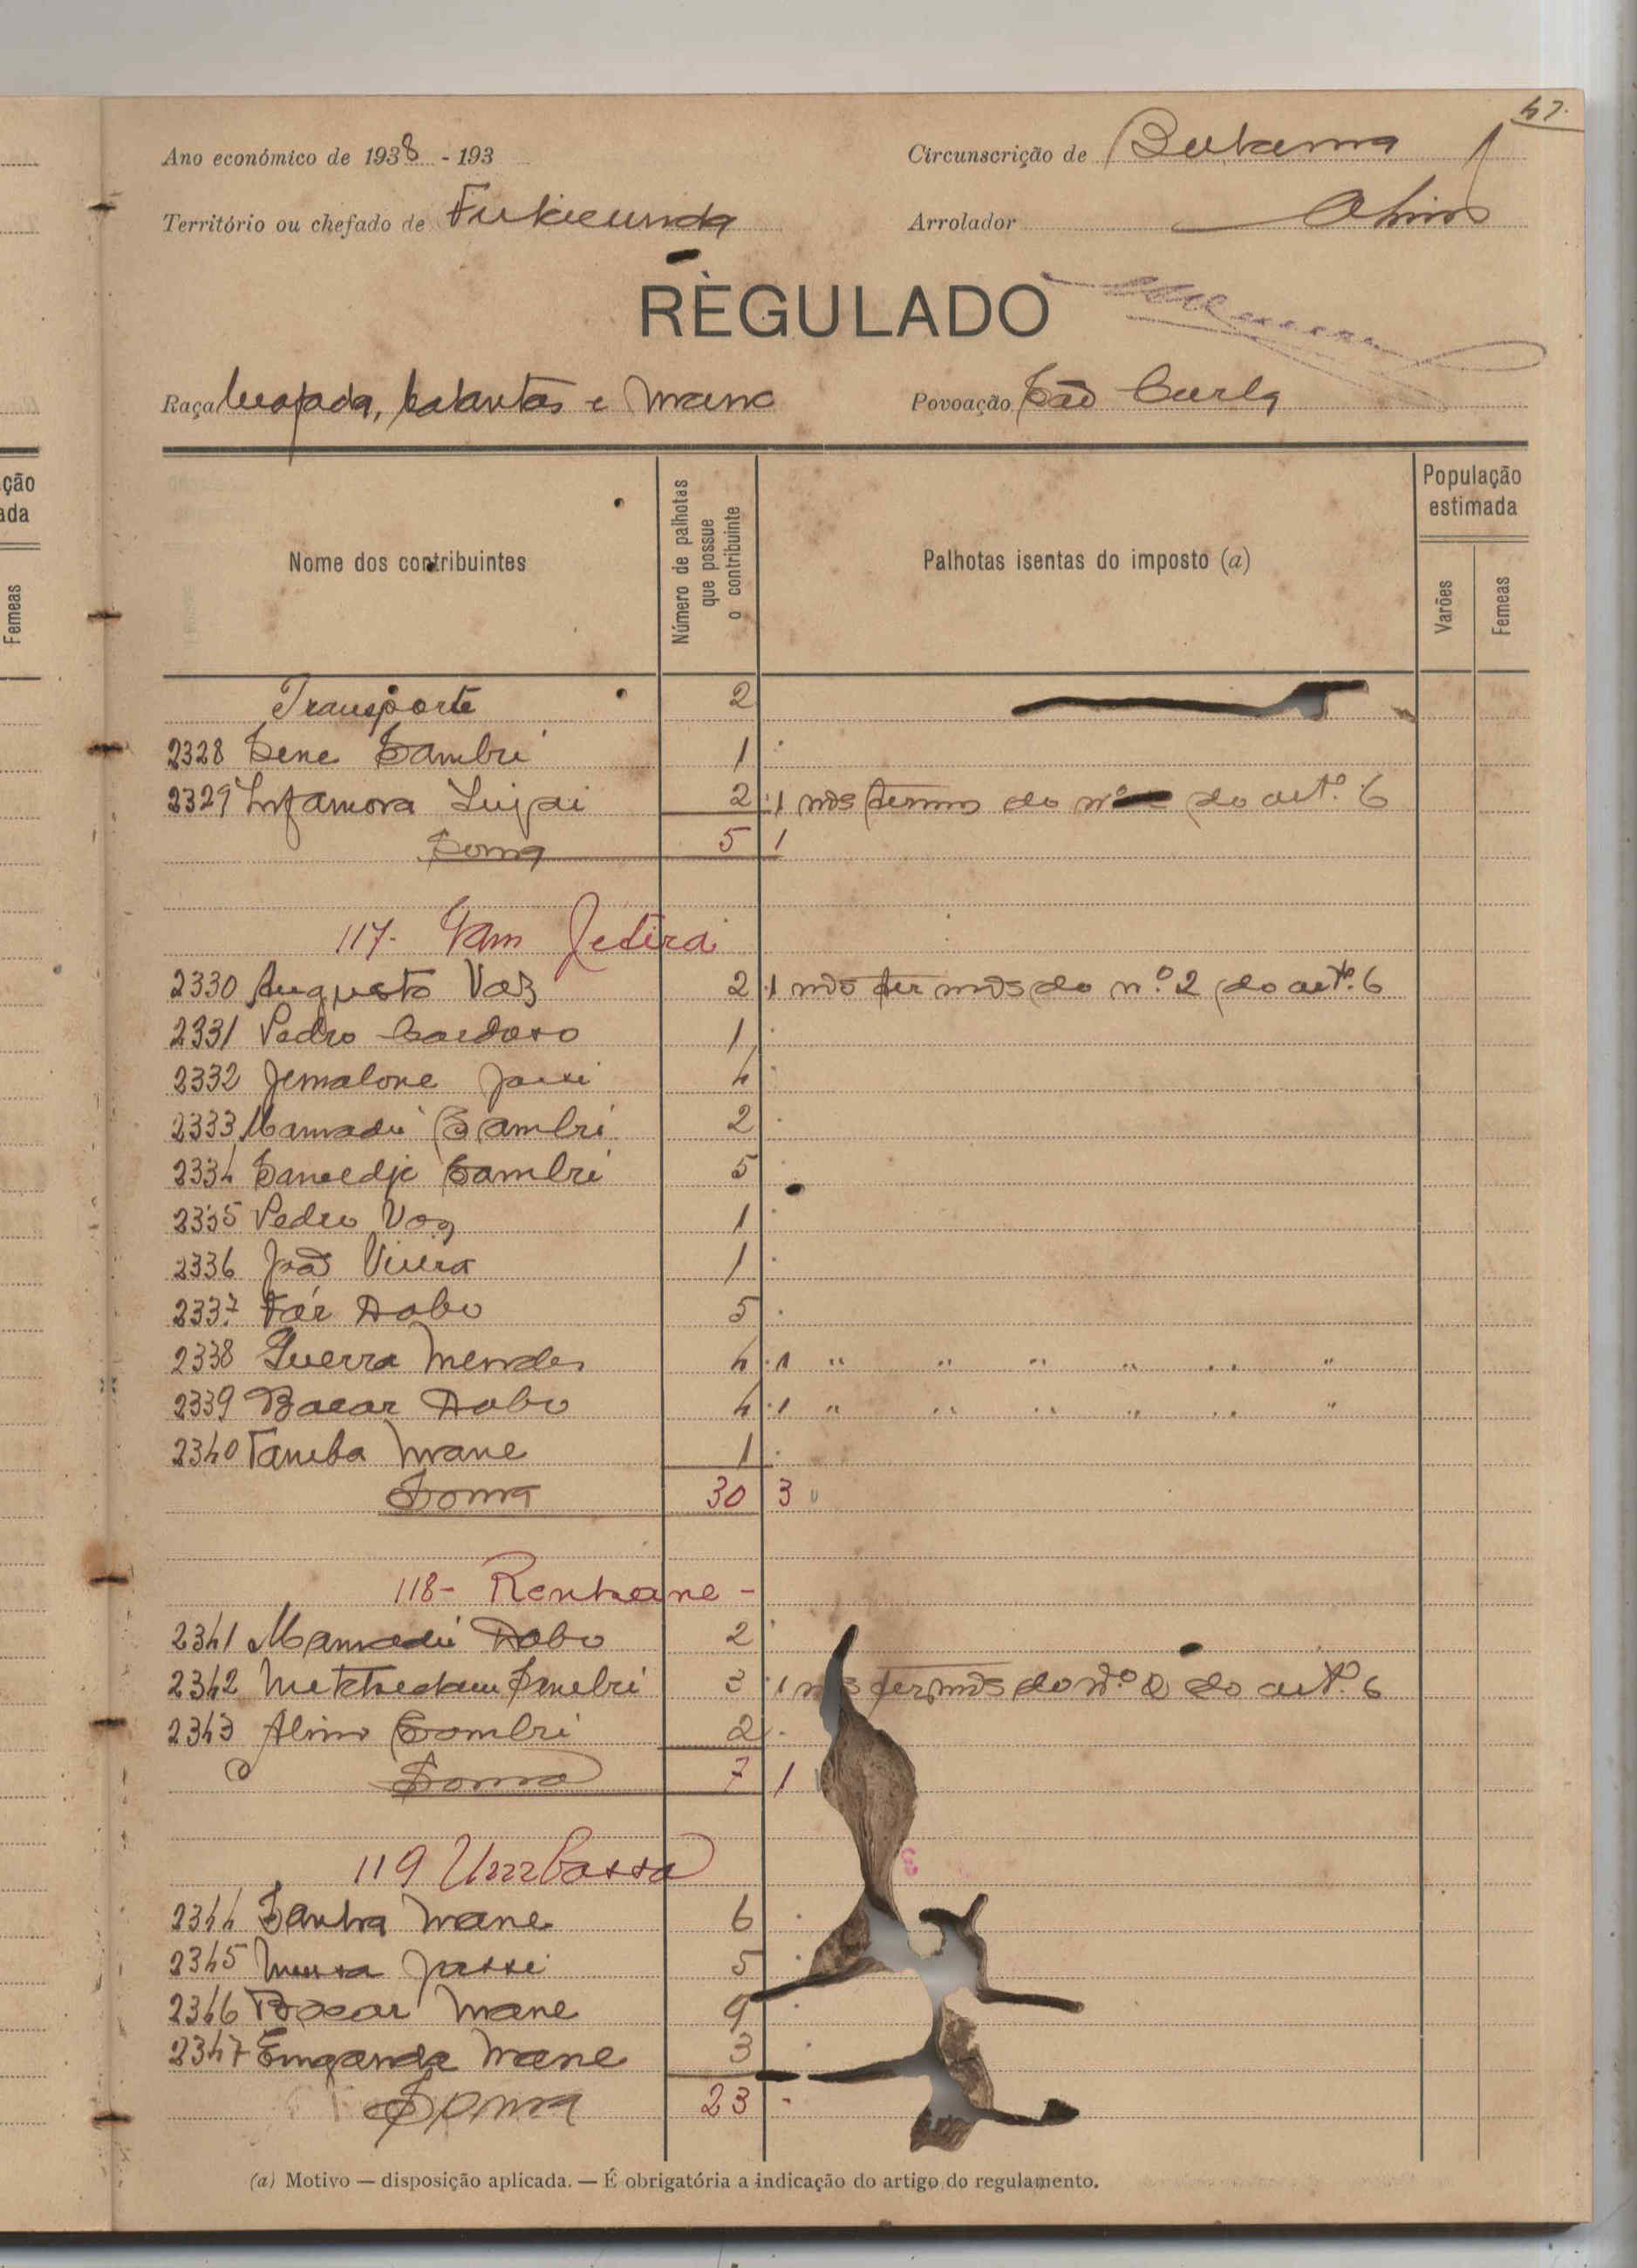 47.
Ano económico de 1938 - 193
Circunscrição de Bubama
Território ou chefado de Fukicunda
Arrolador
REGULADO
Raça Beafada, balantas e Mane
Povoação São Curla
ção
ada
Femeas
Nome dos contribuintes
Número de palhotas que possue o contribuinte
Palhotas isentas do imposto (a)
População estimada
Varões
Femeas
Transporte 2
2328 Sene Sambú 1
2329 Infamora Injai 2 1 nos termos do nº do artº. 6
Soma 5 1
117- Gam Jetira
2330 Augusto Vaz 2 1 nos termos do n.º 2 do artº. 6
2331 Pedro Cardoso 1
2332 Jemalone Jassi 4
2333 Mamadú Sambú 2
2334 Sambú 5
2335 Pedro Vaz 1
2336 João Vieira 1
2337 Fár Dabo 5
2338 Guerra Mendes 4 1 " " " " " "
2339 Bacar Dabo 4 1 " " " " " "
2340 Tamba Mane 1
Soma 30 3
118- Renkeane -
2341 Mamadú Dabo 2
2342 3 1 nos termos do nº 2 do artº. 6
2343 Alino Sambú 2
Soma 7 1
119 Umbassa
2344 Sanha Mane 6
2345 Mussa Jassi 5
2346 Bacar Mane 9
2347 Mane 3
Soma 23 -
(a) Motivo — disposição aplicada. — É obrigatória a indicação do artigo do regulamento.